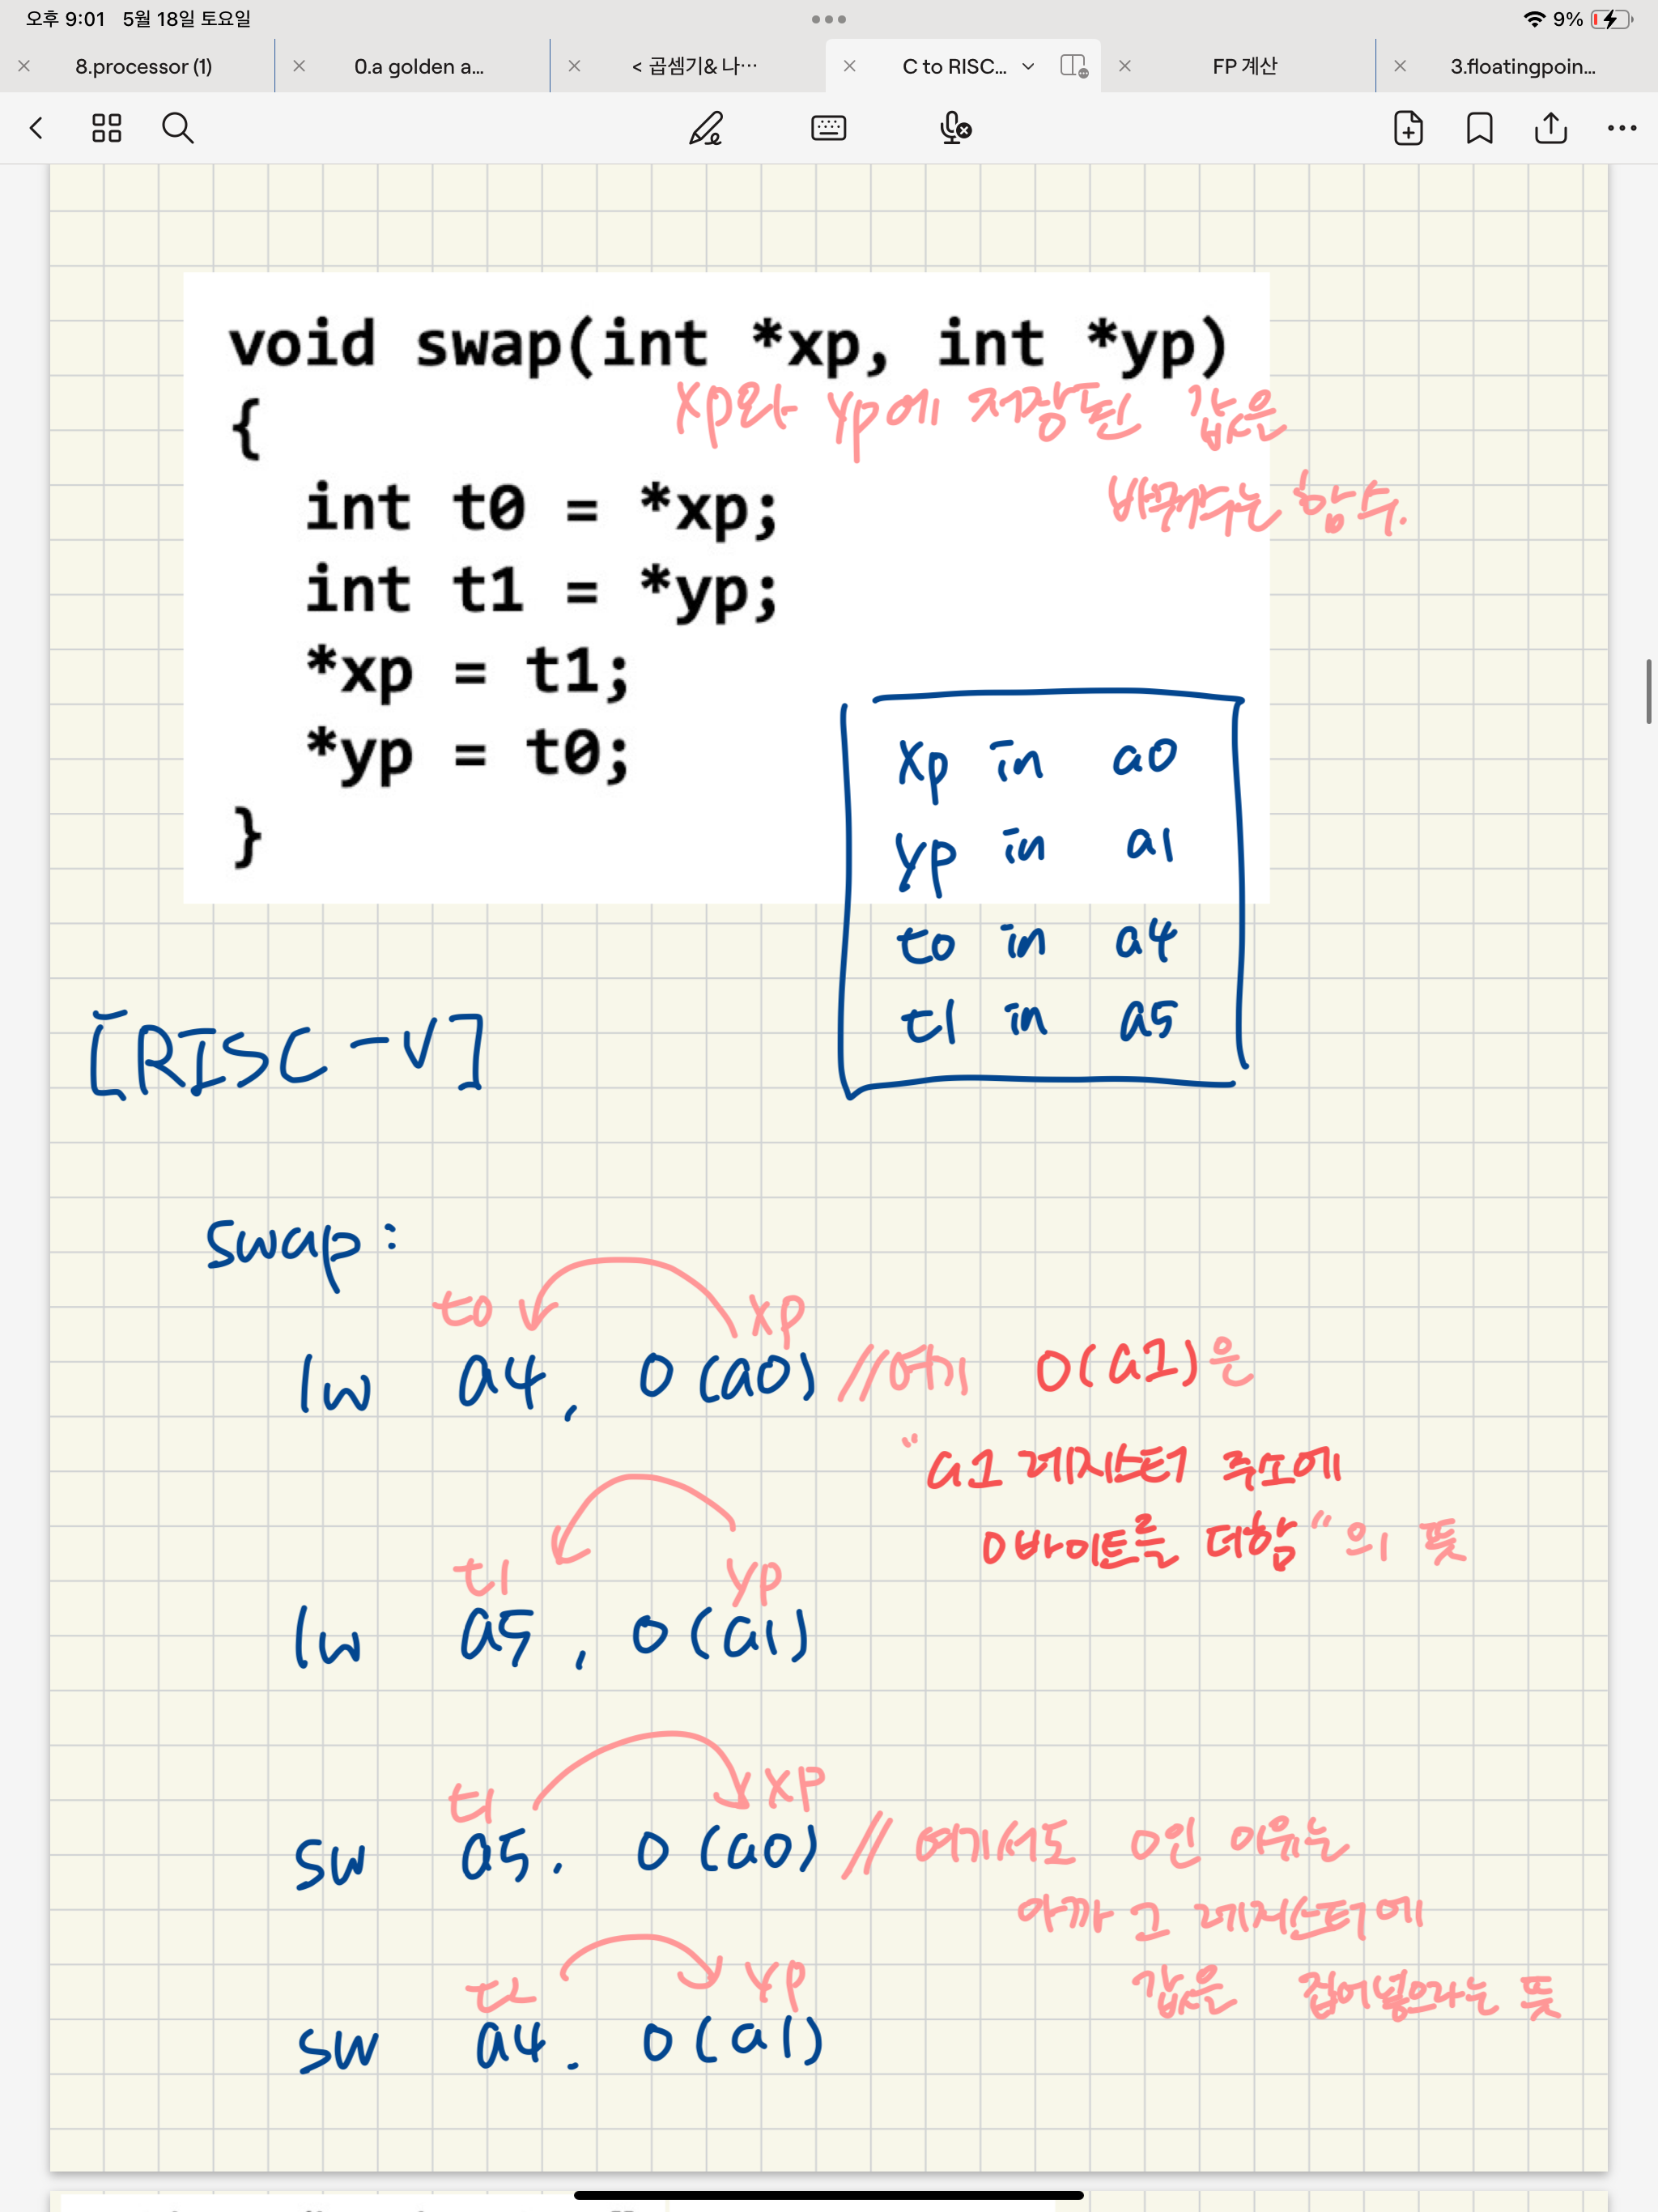 오후 9:01 5월 18일 토요일
9%
8.processor (1)
0.a golden a...
< 곱셈기& 나…
C to RISC...
FP 계산
3.floatingpoin...
void swap(int *xp, int *yp)
xp와 yp에 저장된 값을
{
바꿔주는 함수.
int t0 = *xp;
int t1 = *yp;
*xp = t1;
*yp = t0;
}
xp in a0
yp in a1
t0 in a4
t1 in a5
[RISC-V]
swap:
t0 xp
lw a4, 0(a0) //여기 0(a1)은
"a1 레지스터 주소에
0바이트를 더함"의 뜻
t1 yp
lw a5, 0(a1)
t1 xp
sw a5. 0(a0) // 여기서도 0인 이유는
아까 그 레지스터에
값을 집어넣으라는 뜻
yp
sw a4. 0(a1)